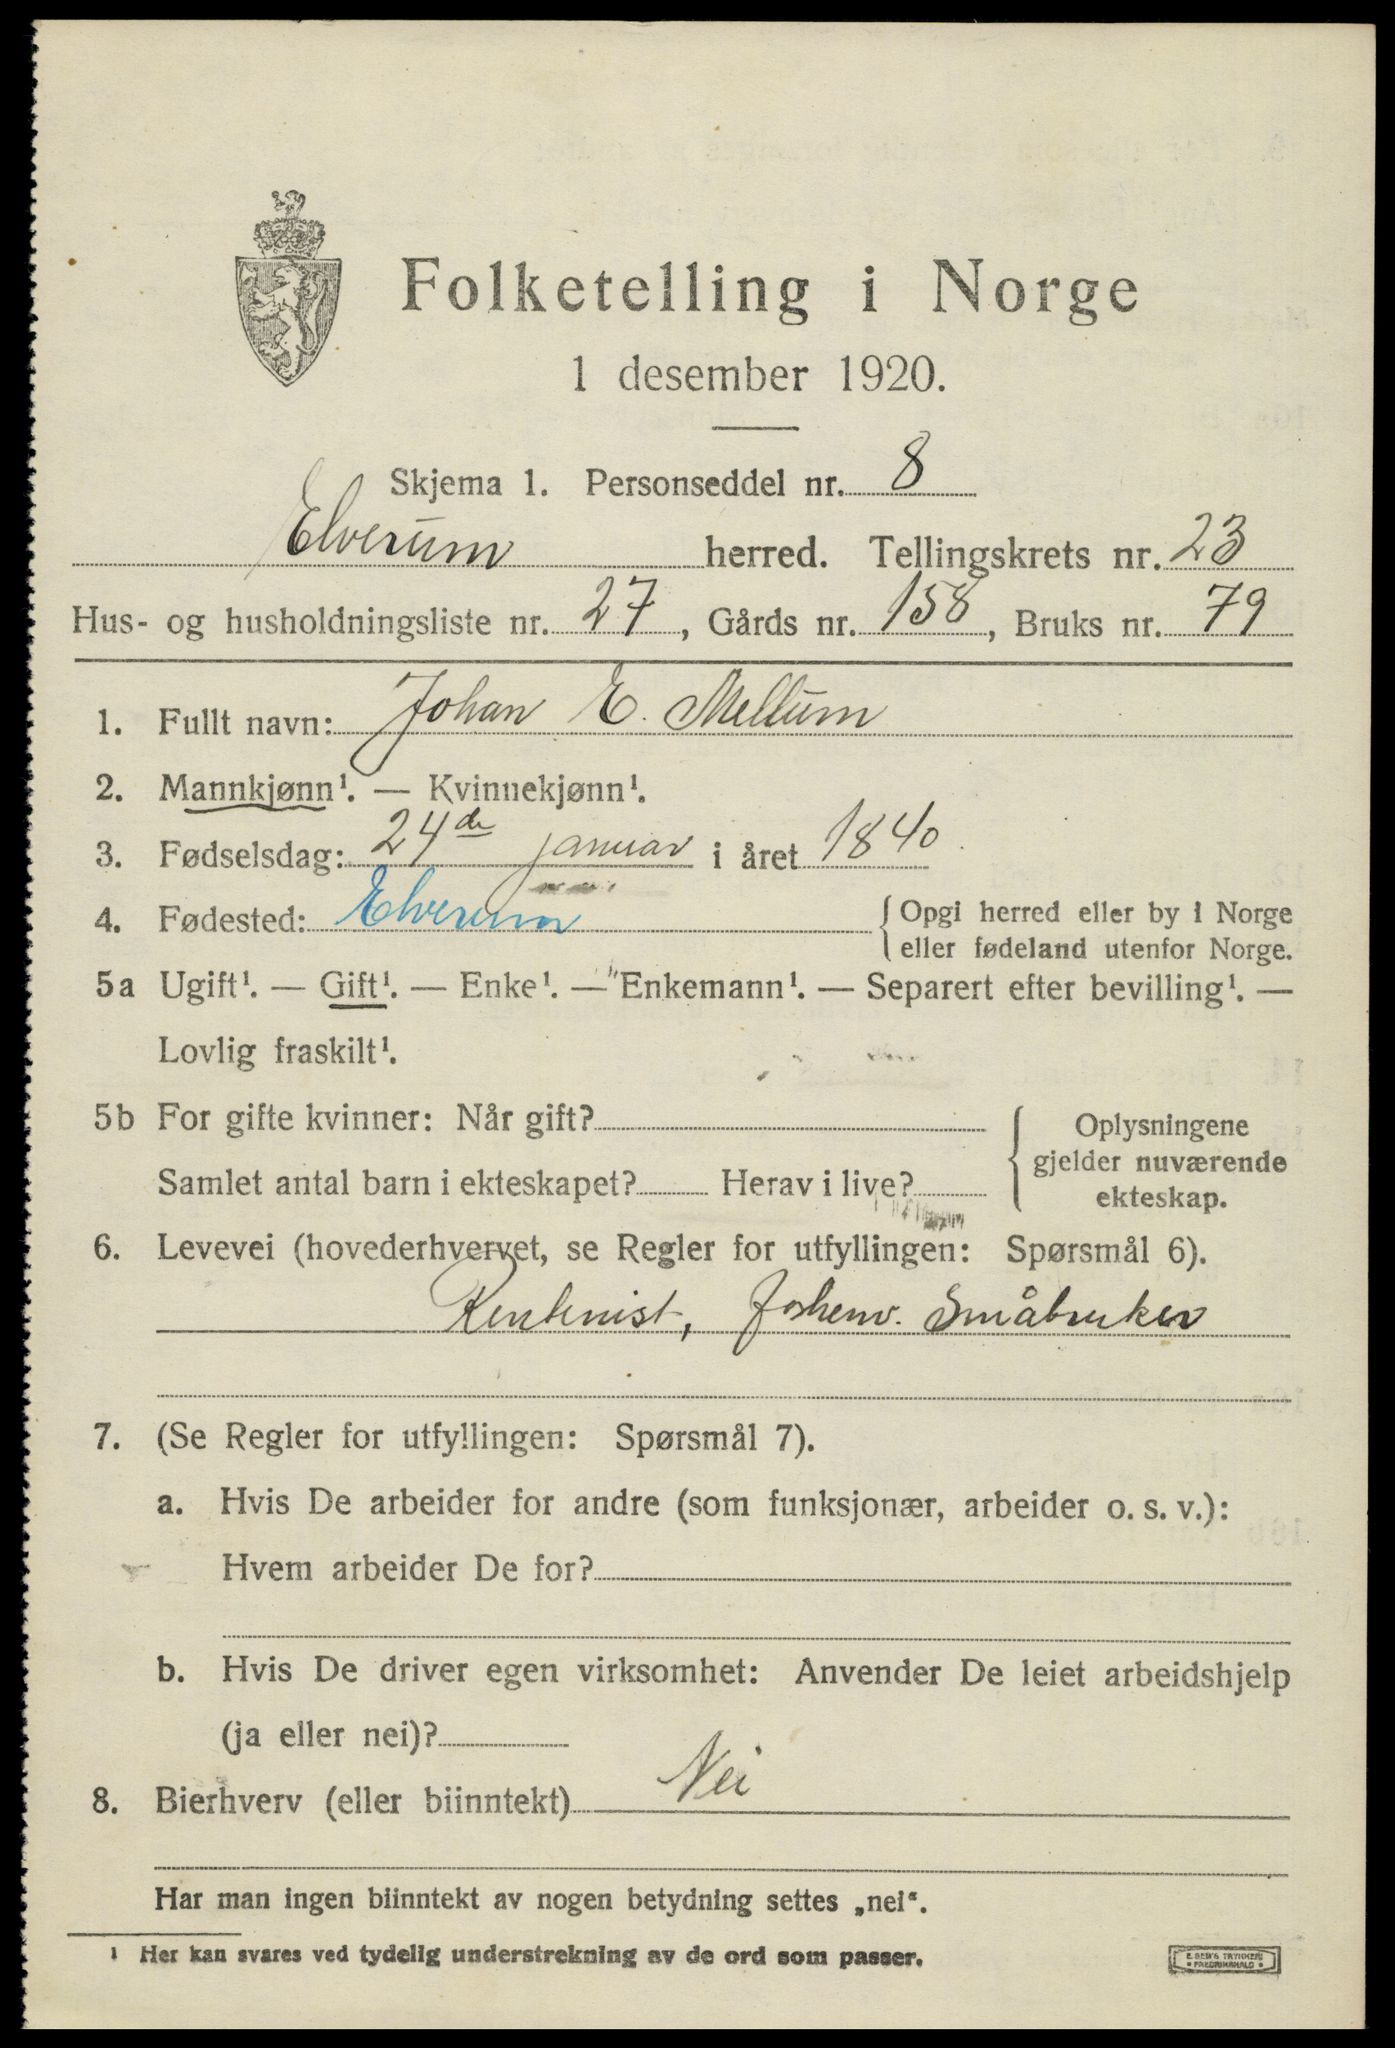 Folketelling i Norge
1 desember 1920.
Skjema 1. Personseddel nr. 8
Elverum herred. Tellingskrets nr. 23
Hus- og husholdningsliste nr. 27, Gårds nr. 158, Bruks nr. 79
1. Fullt navn: Johan E. Mellum
2. Mannkjønn¹. — Kvinnekjønn¹.
3. Fødselsdag: 24de januar i året 1840.
4. Fødested: Elverum { Opgi herred eller by i Norge
eller fødeland utenfor Norge.
5a Ugift¹. — Gift¹. — Enke¹. — Enkemann¹. — Separert efter bevilling¹. —
Lovlig fraskilt¹.
5b For gifte kvinner: Når gift?
Samlet antal barn i ekteskapet? Herav i live?
{ Oplysningene
gjelder nuværende
ekteskap.
6. Levevei (hovederhvervet, se Regler for utfyllingen: Spørsmål 6).
Rentenist, forhenv. Småbruker
7. (Se Regler for utfyllingen: Spørsmål 7).
a. Hvis De arbeider for andre (som funksjonær, arbeider o. s. v.):
Hvem arbeider De for?
b. Hvis De driver egen virksomhet: Anvender De leiet arbeidshjelp
(ja eller nei)?
8. Bierhverv (eller biinntekt) Nei
Har man ingen biinntekt av nogen betydning settes „nei“.
¹ Her kan svares ved tydelig understrekning av de ord som passer.
E. SEM'S TRYKKERI
• FREDRIKSHALD •